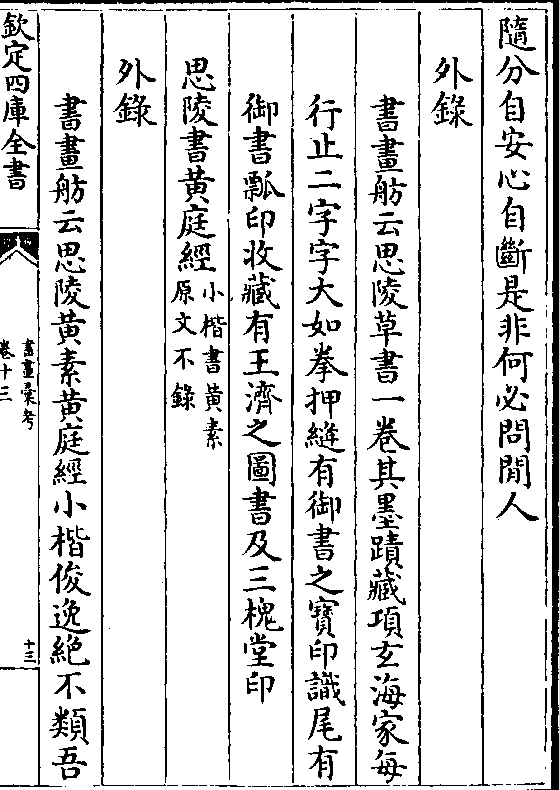 隨分自安心自斷是非何必問閒人
外錄
書畫舫云思陵草書一卷其墨蹟藏項玄海家每
行止二字字大如拳押縫有御書之寶印識尾有
御書瓢印收藏有王濟之圖書及三槐堂印
思陵書黃庭經小楷書黃素
原文不錄
外錄
書畫舫云思陵黃素黃庭經小楷俊逸絕不類吾
欽定四庫全書
書畫彙考
卷十三
十三